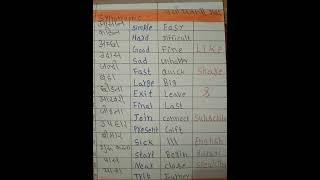 Synonyms
आसान simple Easy
कठिन Hard Difficult
अच्छा Good Fine Like
उदास Sad unhappy
जल्दी Fast quick Share
बड़ा Large Big
छोड़ना Exit Leave &
आखरी Final Last
जोड़ना Join connect Subscribe
उपहार Present Gift
बीमार Sick Ill English
शुरू करना start Begin
पास Near close
Trip Journey